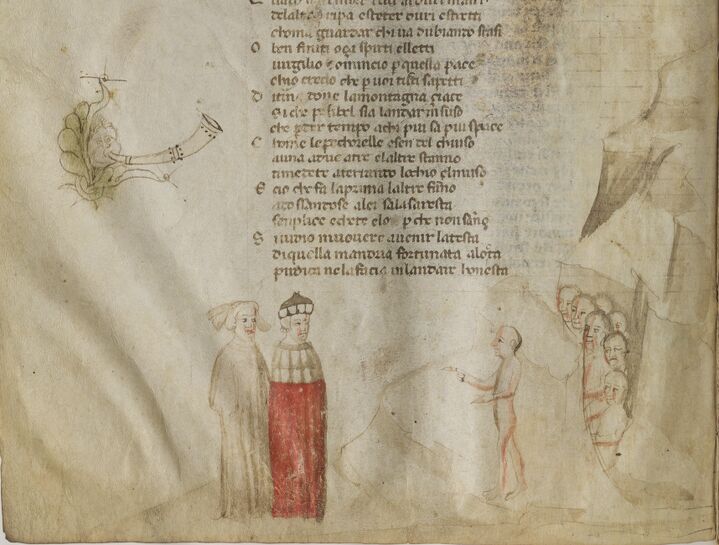 delalta ripa esteter duri estretti
choma guardar chi ua dubianto stasi
O ben finiti o gia spirti elletti
uirgilio comincio p quella pace
chio credo che p uoi tuti sapetti
D itine doue la montagna giace
Si che posibel sia landar insuso
che pder tempo achi piu sa piu spiace
C home le pechorelle esen del chiuso
auna adue atre elaltre stanno
timidete aterranto lochio elmuso
E cio che fa laprima laltre fano
adosandose alei sala saresta
senplice echete elo pche non sano
S i uidio muouere auenir latesta
di quella mandria fortunata alota
pudica ne la facia in landare honesta